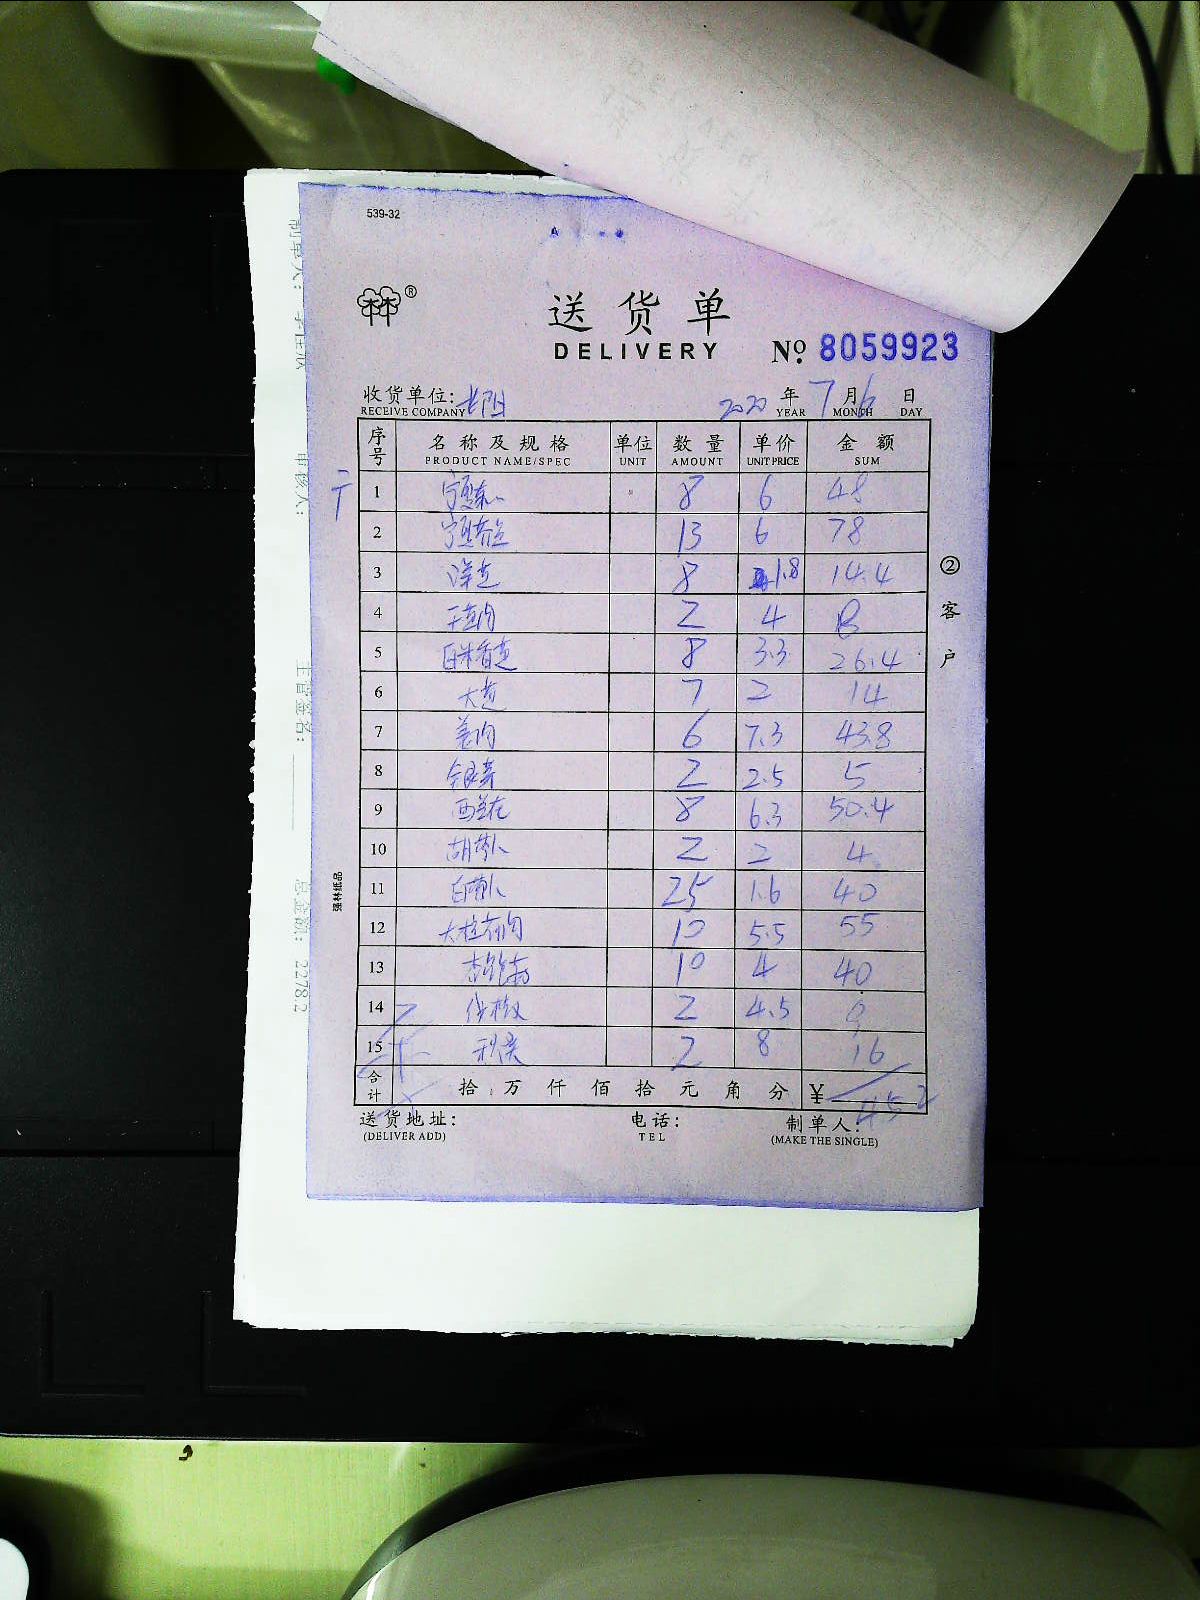 539-32
林®
送货单
DELIVERY № 8059923
收货单位: 2020 年 7 月 6 日
RECEIVE COMPANY YEAR MONTH DAY
序号 名称及规格 单位 数量 单价 金额
PRODUCT NAME/SPEC UNIT AMOUNT UNIT PRICE SUM
1 8 6 48
2 宁夏 13 6 78
3 洋芝 8 1.8 14.4
4 2 4 8
5 8 3.3 26.4
6 7 2 14
7 6 7.3 43.8
8 银芽 2 2.5 5
9 西兰花 8 6.3 50.4
10 胡萝卜 2 2 4
11 白萝卜 25 1.6 40
12 10 5.5 55
13 杏鲍菇 10 4 40
14 2 4.5 9
15 2 8 16
合计 拾 万 仟 佰 拾 元 角 分 ¥ 452
送货地址: 电话: 制单人:
(DELIVER ADD) TEL (MAKE THE SINGLE)
②客户
强林纸品
审核人:
主管签名:
总金额: 2278.2